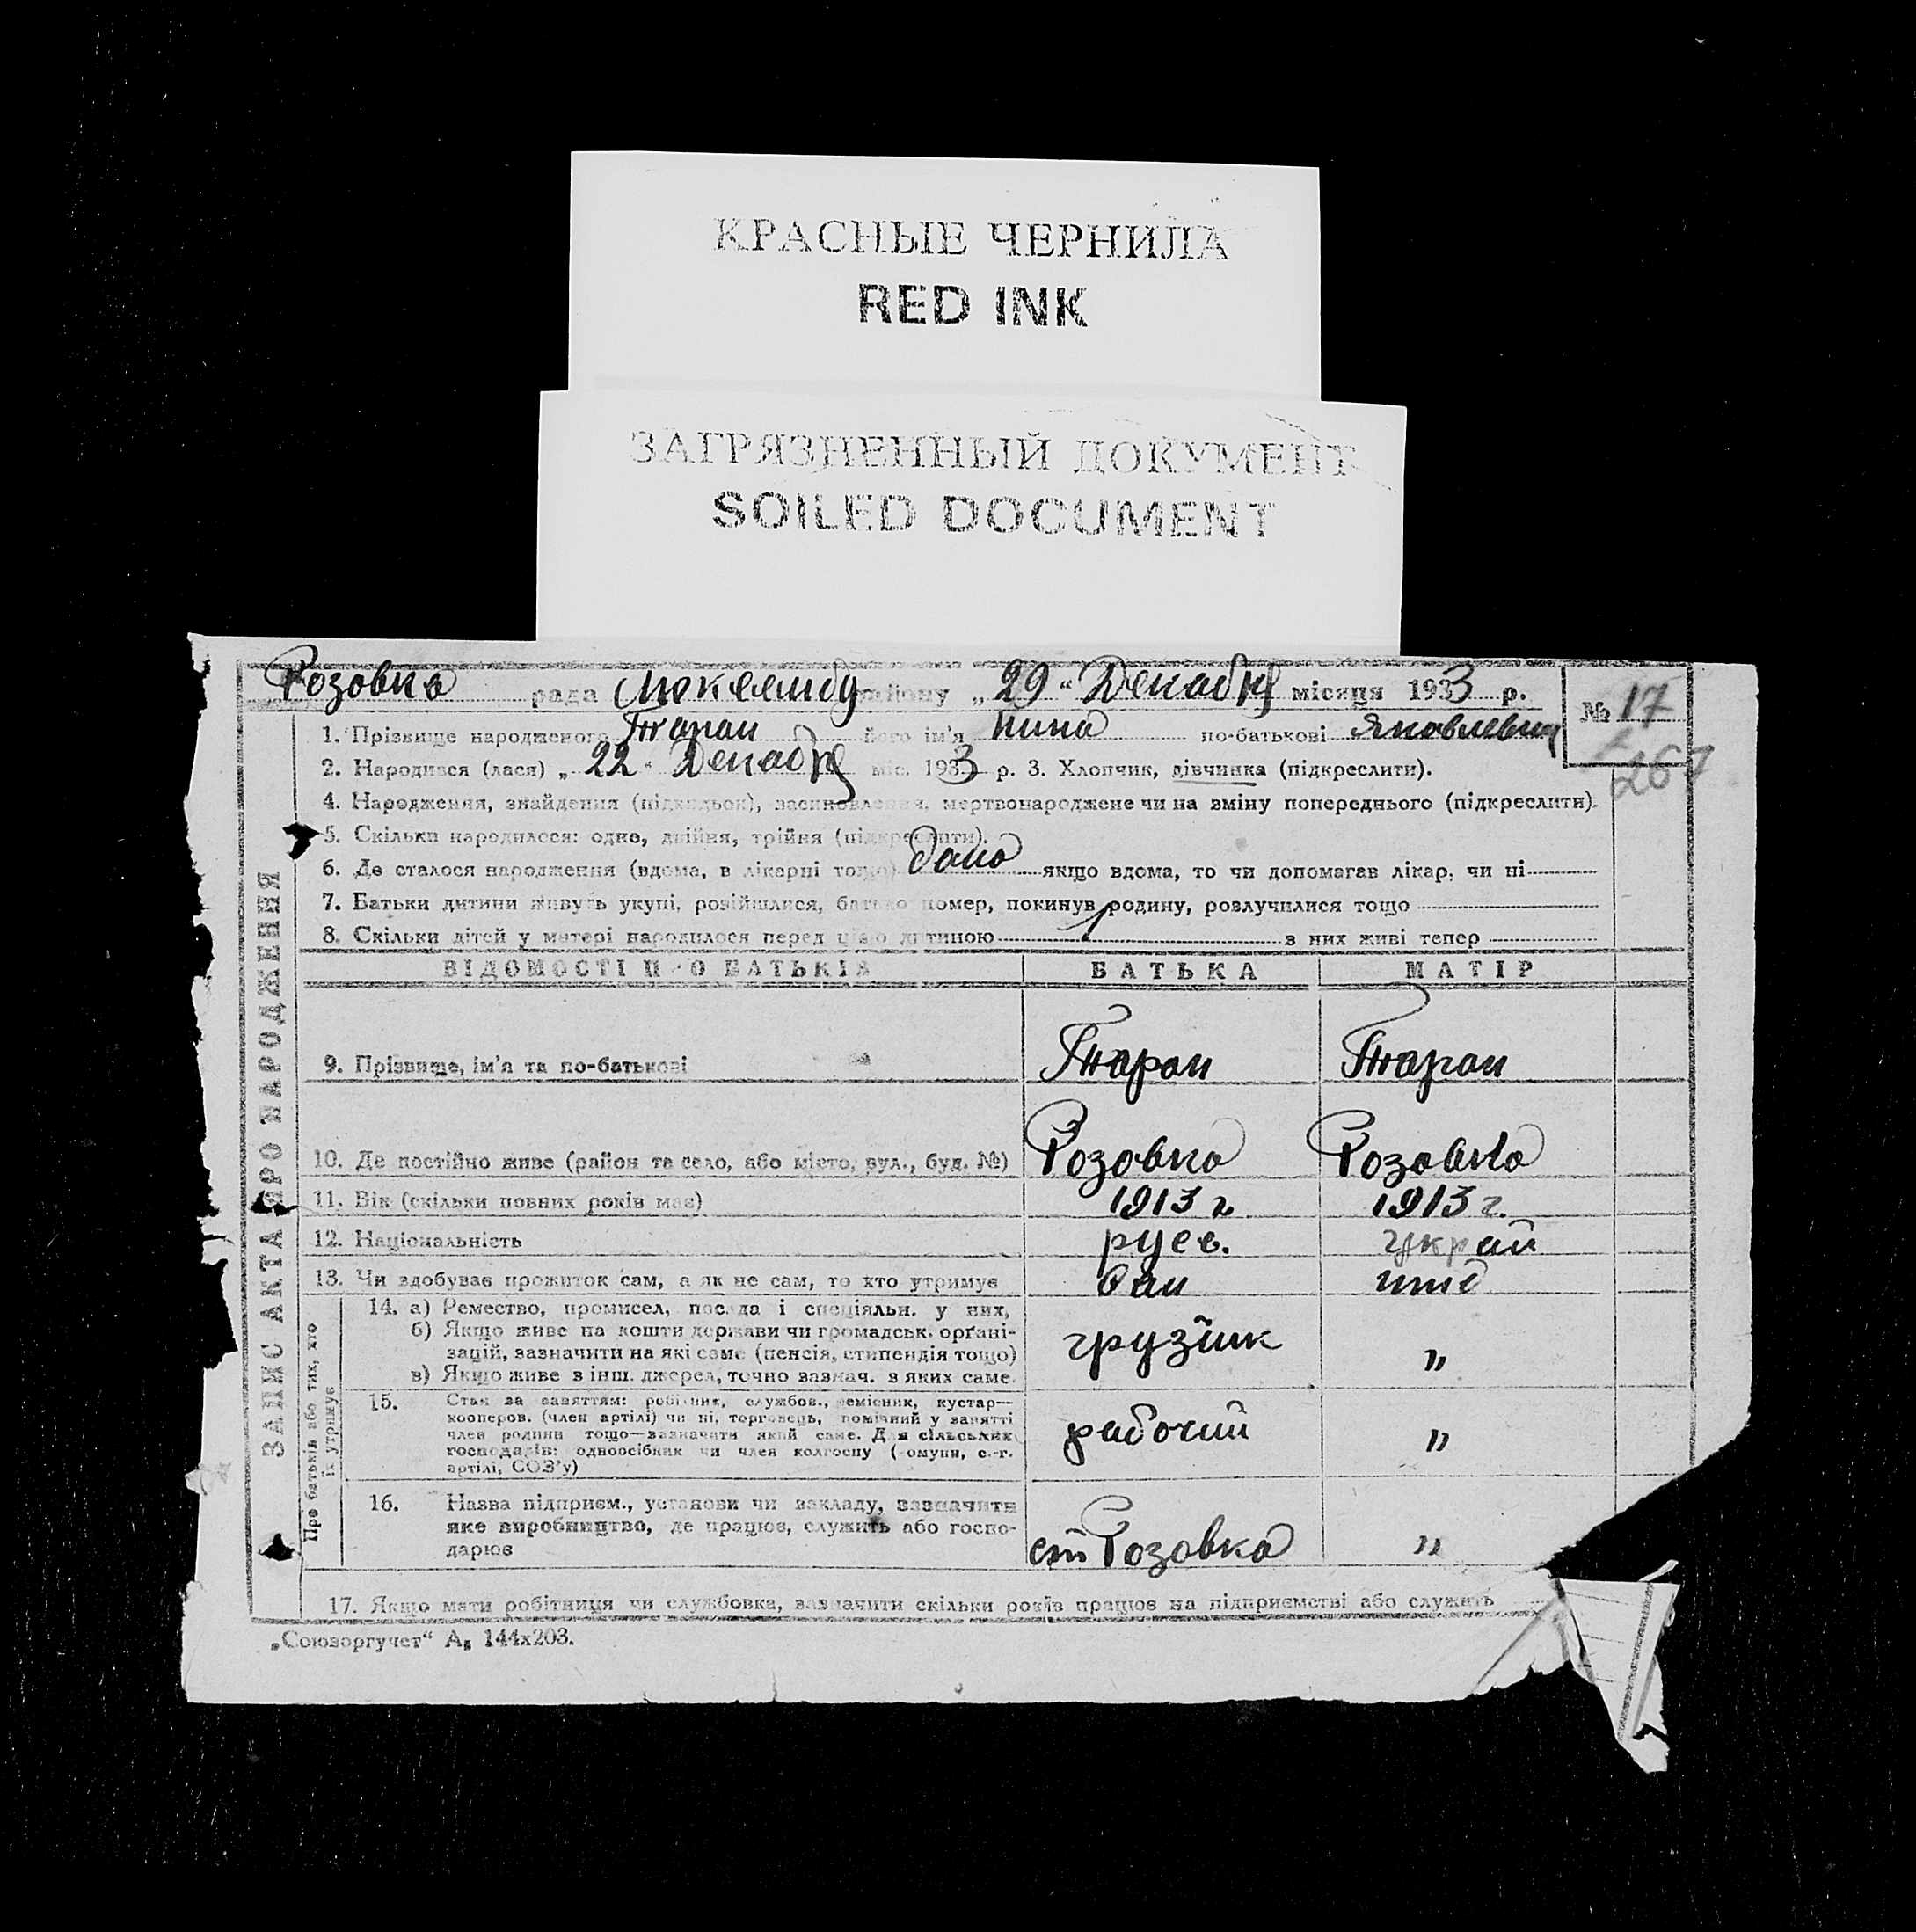 КРАСНЫЕ ЧЕРНИЛА
RED INK
ЗАГРЯЗНЕННЫЙ ДОКУМЕНТ
SOILED DOCUMENT
Розовка рада району „ 29 “ Декабря місяця 1933 р.
№ 17
267
1. Прізвище народженого Таран його ім'я Нина по-батькові Яковлевна
2. Народився (лася) „ 22 “ Декабря міс. 1933 р. 3. Хлопчик, дівчинка (підкреслити).
4. Народження, знайдення (підкидьок), засиновлення, мертвонароджене чи на зміну попереднього (підкреслити).
5. Скільки народилося: одно, двійня, трійня (підкреслити).
6. Де сталося народження (вдома, в лікарні тощо) дома якщо вдома, то чи допомагав лікар, чи ні
7. Батьки дитини живуть укупі, розійшлися, батько помер, покинув родину, розлучилися тощо
8. Скільки дітей у матері народилося перед цією дитиною 1 з них живі тепер
ВІДОМОСТІ ПРО БАТЬКІВ БАТЬКА МАТІР
9. Прізвище, ім'я та по-батькові Таран Таран
10. Де постійно живе (район та село, або місто, вул., буд. №) Розовка Розовка
11. Вік (скільки повних років має) 1913 г. 1913 г.
12. Національність русс. украй
13. Чи здобуває прожиток сам, а як не сам, то хто утримує Сам
14. а) Ремество, промисел, посада і спеціяльн. у них,
б) Якщо живе на кошти держави чи громадськ. орґані-
зацій, зазначити на які саме (пенсія, стипендія тощо)
в) Якщо живе з інш. джерел, точно зазнач. з яких саме.
грузчик "
15. Стан за заняттям: робітник, службов., ремісник, кустар—
кооперов. (член артілі) чи ні, торговець, помічний у занятті
член родини тощо—зазначити який саме. Для сільських
господарів: одноосібник чи член колгоспу (комуни, с.-г.
артілі, СОЗ'у)
рабочий "
16. Назва підприєм., установи чи закладу, зазначити
яке виробництво, де працює, служить або госпо-
дарює
ст Розовка "
17. Якщо мати робітниця чи службовка, зазначити скільки років працює на підприємстві або служить
„Союзоргучет“ А₅ 144х203.
ЗАПИС АКТА ПРО НАРОДЖЕННЯ
Про батьків або тих, хто
їх утримує